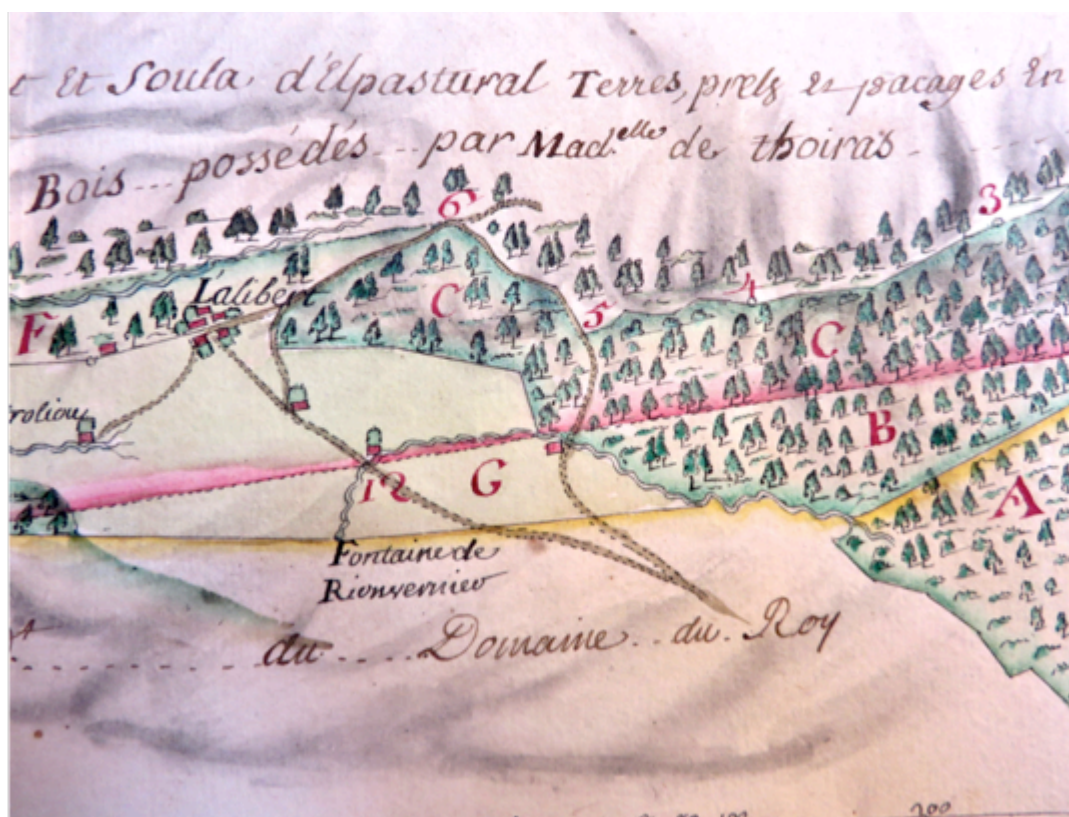 t Et Soula d'Elpastural Terres, prels et pacages En
Bois possédés par Mad.elle de thoiras
6
3
4
5
Lalibert
F
C
C
B
A
G
12
Fontaine de
du Domaine du Roy
200